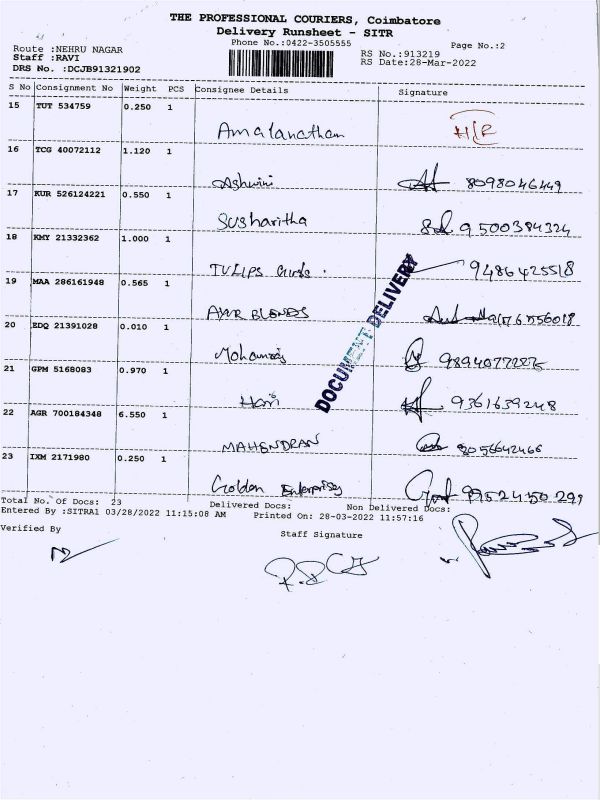 THE PROFESSIONAL COURIERS, Coimbatore
Delivery Runsheet - SITR
Phone No.:0422-3505555
Page No.:2
Route :NEHRU NAGAR
RS No.:913219
Staff :RAVI
RS Date:28-Mar-2022
DRS No. :DCJB91321902
S No Consignment No Weight PCS Consignee Details Signature
15 TUT 534759 0.250 1
Amalanatham
16 TCG 40072112 1.120 1
Ashwini 8098046449
17 KUR 526124221 0.550 1
Susharitha 9500384324
18 KMY 21332362 1.000 1
TULIPS 9486425518
19 MAA 286161948 0.565 1
BLENDS
20 EDQ 21391028 0.010 1
Mohanraj
21 GPM 5168083 0.970 1
Hari 9361639248
22 AGR 700184348 6.550 1
MAHENDRAN 8056642466
23 IXM 2171980 0.250 1
Golden Enterprises 9952450299
DOCUMENT DELIVERY
Total No. Of Docs: 23 Delivered Docs: Non Delivered Docs:
Entered By :SITRA1 03/28/2022 11:15:08 AM Printed On: 28-03-2022 11:57:16
Verified By
Staff Signature